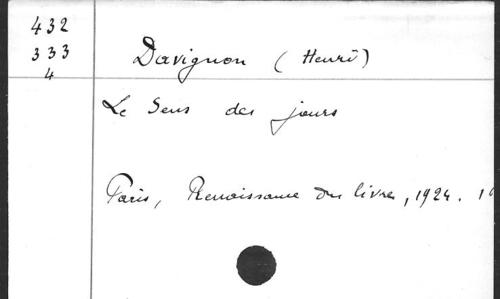 432
333
4
Davignon (Henri)
Le Sens des jours
Paris, Renaissance du livre, 1924.